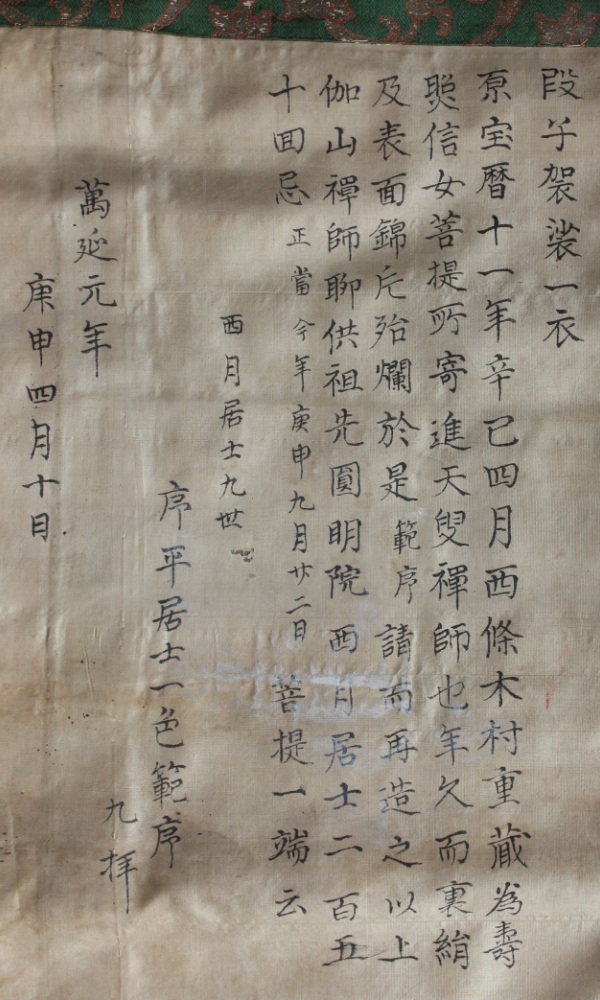 段子袈裟一衣
原宝暦十一年辛巳四月西條木村重蔵為壽
照信女菩提所寄進天叟禪師也年久而裏絹
及表面錦尼殆爛於是範序請而再造之以上
伽山禪師聊供祖先圓明院西月居士二百五
十回忌正當今年庚申九月廿二日菩提一端云
西月居士九世
序平居士一色範序
九拝
萬延元年
庚申四月十日